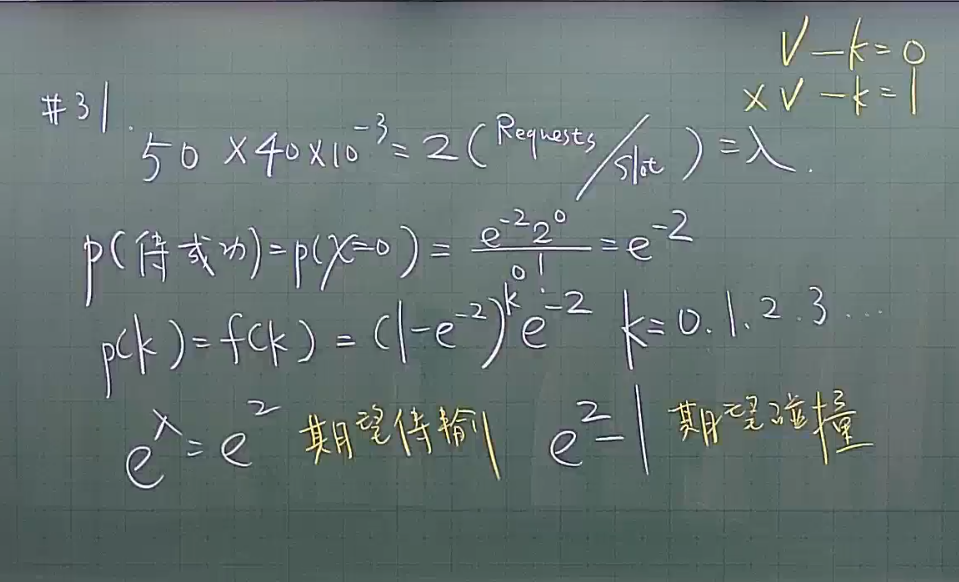 V — k = 0
× V — k = 1
#31.
50 × 40 × 10⁻³ = 2 ( Requests / Slot ) = λ.
p(傳成功) = p(X=0) = e⁻²2⁰ / 0! = e⁻²
p(k) = f(k) = (1-e⁻²)ᵏ e⁻² k = 0. 1. 2. 3 ...
e^λ = e² 期望傳輸 e² - 1 期望碰撞